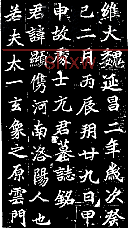 維大魏延昌二年歲次癸
巳二月丙辰朔廿九日甲
申故處士元君墓誌銘
君諱顯儁河南洛陽人也
若夫太一玄象之原雲門